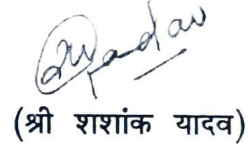 (श्री शशांक यादव)